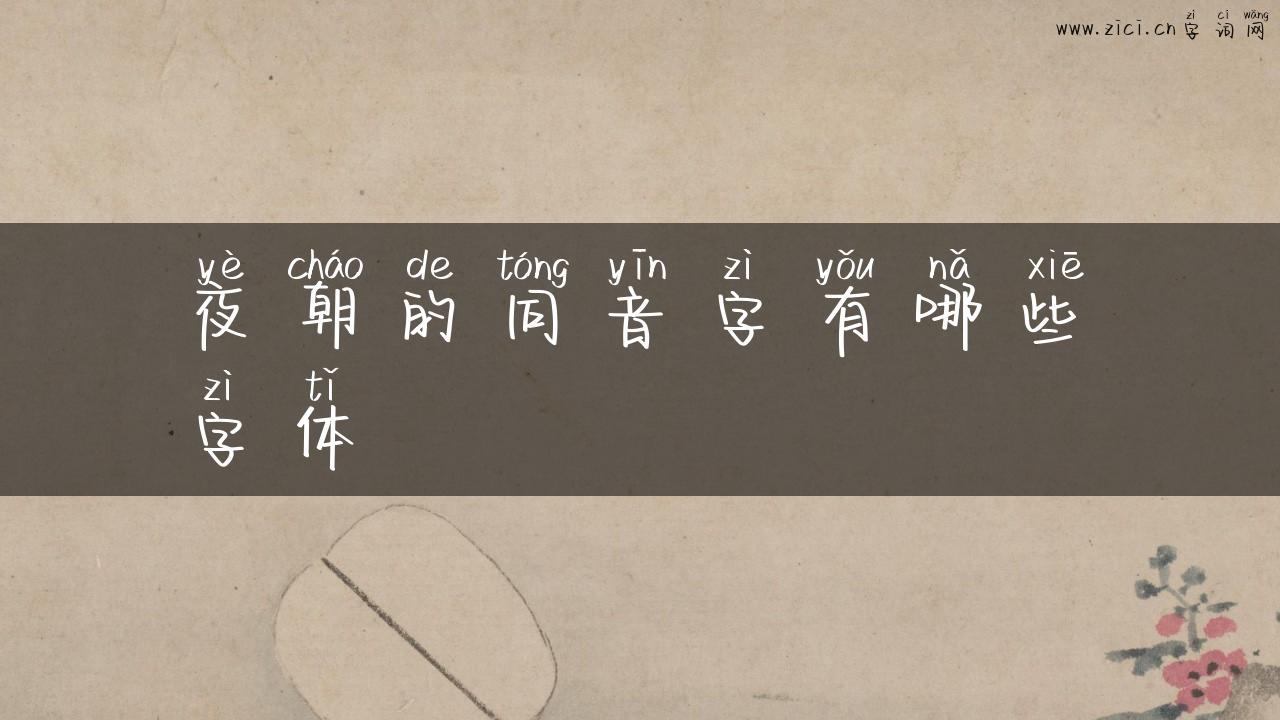 zì cí wǎng
www.zici.cn 字 词 网
yè cháo de tóng yīn zì yǒu nǎ xiē
夜 朝 的 同 音 字 有 哪 些
zì tǐ
字 体